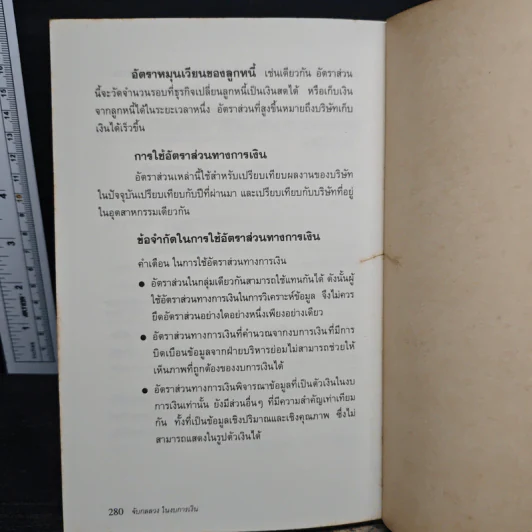 อัตราหมุนเวียนของลูกหนี้ เช่นเดียวกัน อัตราส่วน
นี้จะวัดจำนวนรอบที่ธุรกิจเปลี่ยนลูกหนี้เป็นเงินสดได้ หรือเก็บเงิน
จากลูกหนี้ได้ในระยะเวลาหนึ่ง อัตราส่วนที่สูงขึ้นหมายถึงบริษัทเก็บ
เงินได้เร็วขึ้น
การใช้อัตราส่วนทางการเงิน
อัตราส่วนเหล่านี้ใช้สำหรับเปรียบเทียบผลงานของบริษัท
ในปัจจุบันเปรียบเทียบกับปีที่ผ่านมา และเปรียบเทียบกับบริษัทที่อยู่
ในอุตสาหกรรมเดียวกัน
ข้อจำกัดในการใช้อัตราส่วนทางการเงิน
คำเตือน ในการใช้อัตราส่วนทางการเงิน
● อัตราส่วนในกลุ่มเดียวกันสามารถใช้แทนกันได้ ดังนั้นผู้
ใช้อัตราส่วนทางการเงินในการวิเคราะห์ข้อมูล จึงไม่ควร
ยึดอัตราส่วนอย่างใดอย่างหนึ่งเพียงอย่างเดียว
● อัตราส่วนทางการเงินที่คำนวณจากงบการเงินที่มีการ
บิดเบือนข้อมูลจากฝ่ายบริหารย่อมไม่สามารถช่วยให้
เห็นภาพที่ถูกต้องของงบการเงินได้
● อัตราส่วนทางการเงินพิจารณาข้อมูลที่เป็นตัวเงินในงบ
การเงินเท่านั้น ยังมีส่วนอื่นๆ ที่มีความสำคัญเท่าเทียม
กัน ทั้งที่เป็นข้อมูลเชิงปริมาณและเชิงคุณภาพ ซึ่งไม่
สามารถแสดงในรูปตัวเงินได้
280 จับกลลวง ในงบการเงิน